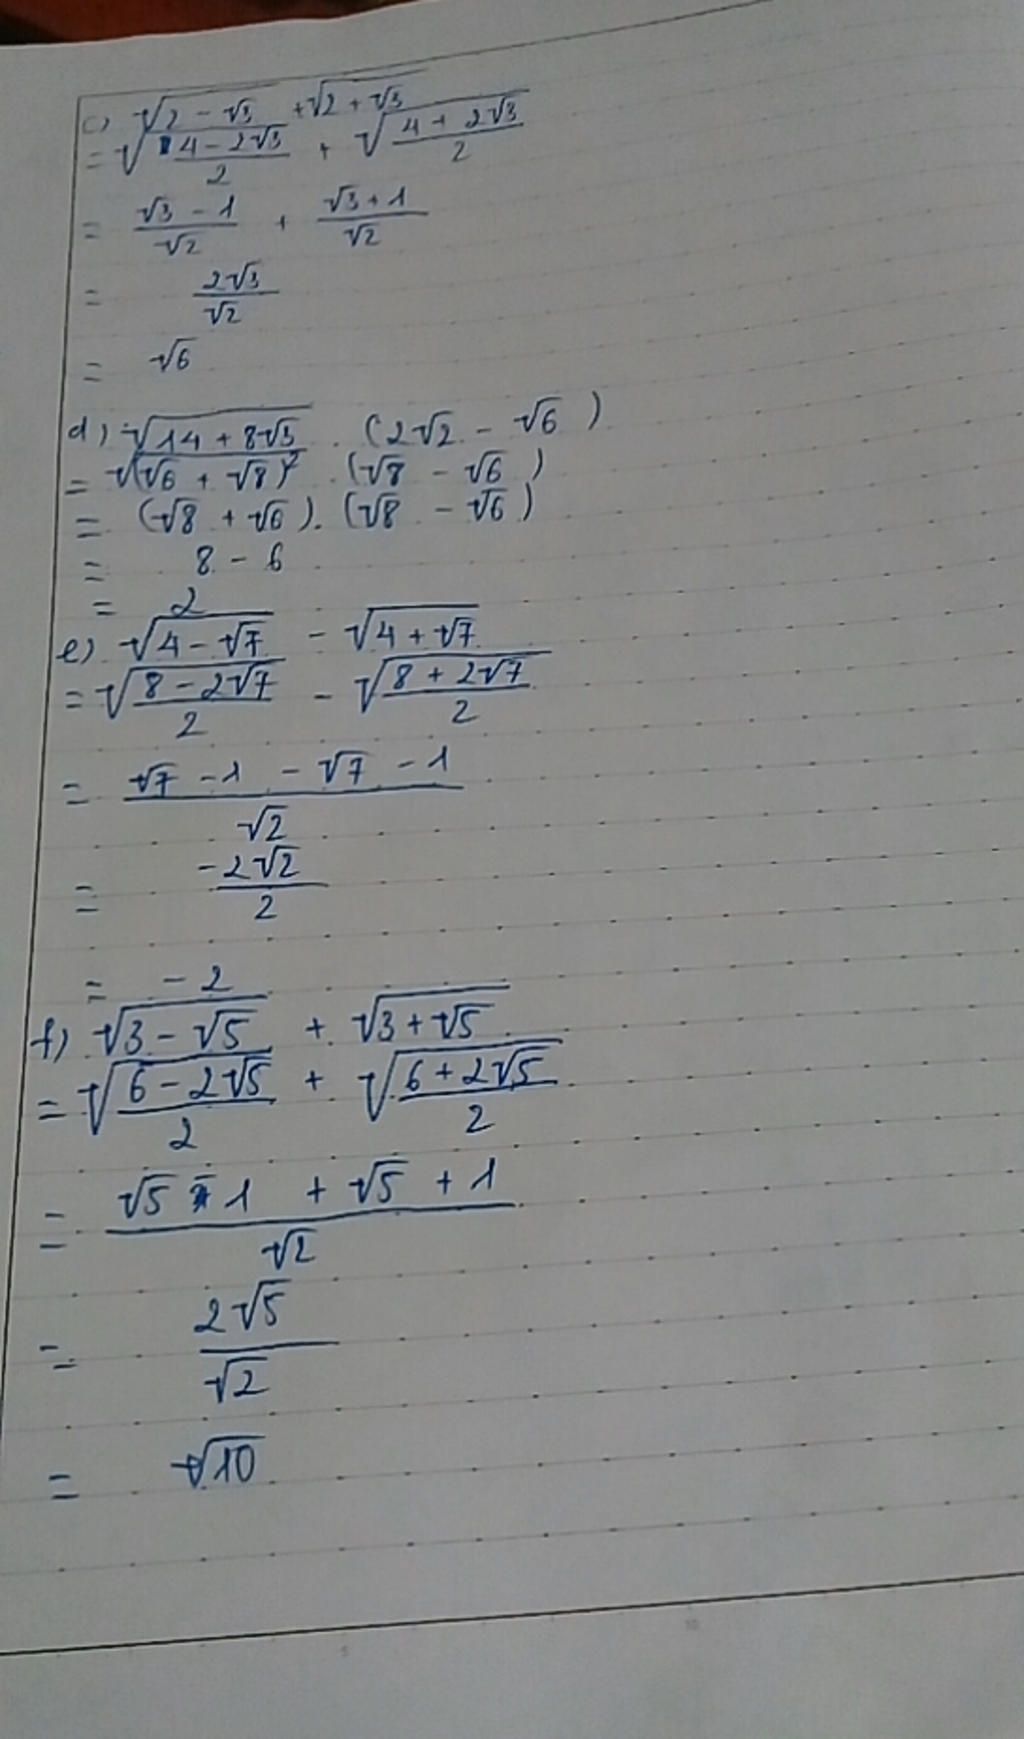 c) √(2 - √3) + √(2 + √3)
= √((4 - 2√3)/2) + √((4 + 2√3)/2)
= (√3 - 1)/√2 + (√3 + 1)/√2
= 2√3/√2
= √6
d) √(14 + 8√3) . (2√2 - √6)
= √((√6 + √8)²) . (√8 - √6)
= (√8 + √6) . (√8 - √6)
= 8 - 6
= 2
e) √(4 - √7) - √(4 + √7)
= √((8 - 2√7)/2) - √((8 + 2√7)/2)
= (√7 - 1 - √7 - 1)/√2
= -2√2/2
= -2
f) √(3 - √5) + √(3 + √5)
= √((6 - 2√5)/2) + √((6 + 2√5)/2)
= (√5 - 1 + √5 + 1)/√2
= 2√5/√2
= √10